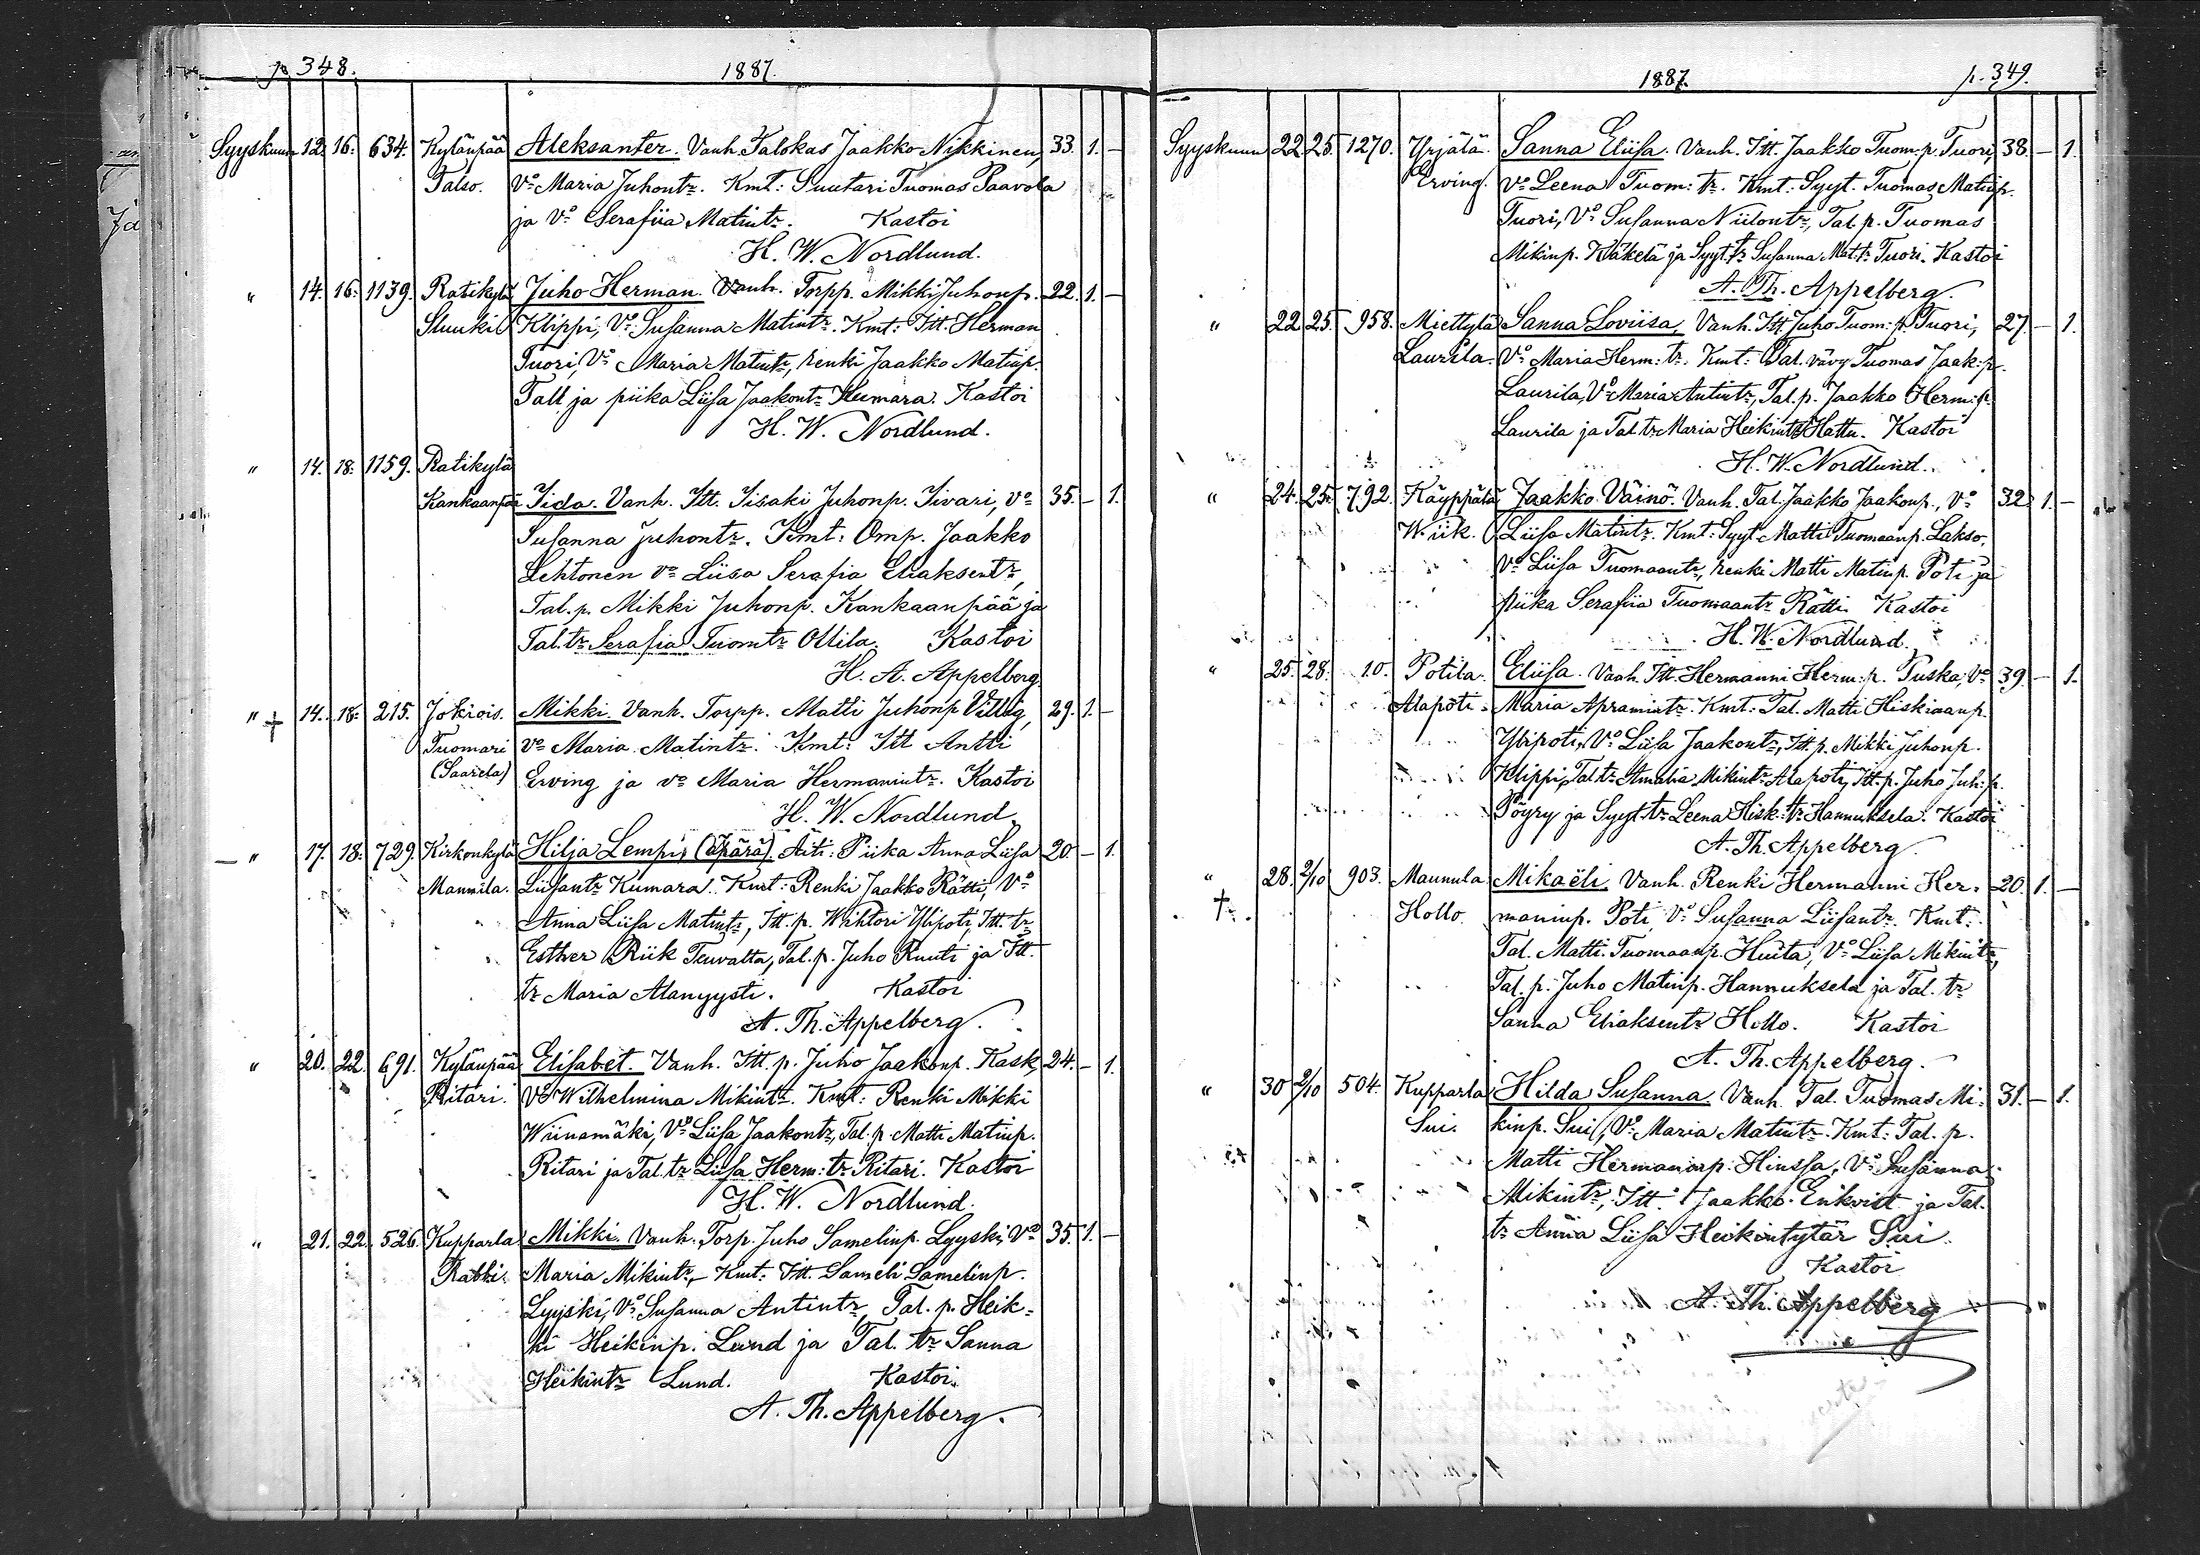 p. 348.
1887.
Syyskuun 12. 16. 634. Kylänpää Aleksanter. Vanh. Talokas Jaakko Nikkinen, 33. 1. —
Talso. Vo Maria Juhontr. Kmt: Suutari Tuomas Paavola
ja Vo Serafiia Matintr. Kastoi
H. W. Nordlund.
" 14. 16. 1139. Ratikylä Juho Herman. Vanh. Torpp. Mikki Juhonp. 22. 1. —
Sluuki Klippi, Vo Susanna Matintr. Kmt: Itt. Herman
Tuori, Vo Maria Matintr, renki Jaakko Matinp.
Tall ja piika Liisa Jaakontr Kumara. Kastoi
H. W. Nordlund.
" 14. 18. 1159. Ratikylä
Kankaanpää Iida. Vanh. Itt. Iisaki Juhonp. Iivari, vo 35. — 1.
Susanna Juhontr. Kmt: Omp. Jaakko
Lehtonen vo Liisa Serafia Eliaksentr,
Tal. p. Mikki Juhonp. Kankaanpää ja
Tal. tr Serafia Tuomtr Ollila. Kastoi
H. A. Appelberg.
" + 14. 18. 215. Jokrois. Mikki. Vanh. Torpp. Matti Juhonp Villug, 29. 1. —
Tuomari vo Maria Matintr. Kmt: Itt Antti
(Saarela) Erving ja vo Maria Hermanintr. Kastoi
H. W. Nordlund.
— " 17. 18. 729. Kirkonkylä Hilja Lempi, (äpärä). Äiti: Piika Anna Liisa 20. — 1.
Mannila. Liisantr Kumara. Kmt: Renki Jaakko Rätti, Vo
Anna Liisa Matintr, Itt. p. Wihtori Ylipoti, Itt. tr
Esther Riik Teuvalta, Tal. p. Juho Ruuti ja Itt.
tr Maria Alanyysti. Kastoi
A. Th. Appelberg.
" 20. 22. 691. Kylänpää Elisabet. Vanh. Itt. p. Juho Jaakonp. Kask, 24. — 1.
Ritari. Vo Wilhelmina Mikintr. Kmt: Renki Mikki
Wiinamäki, Vo Liisa Jaakontr, Tal. p. Matti Matinp.
Ritari ja Tal. tr Liisa Herm: tr Ritari. Kastoi
H. W. Nordlund.
" 21. 22. 526. Kupparla Mikki. Vanh. Torp. Juho Samelinp. Lyyski, Vo 35. 1. —
Rabbi. Maria Mikintr, Kmt: Itt. Sameli Samelinp.
Lyyski, Vo Susanna Antintr, Tal. p. Heik-
ki Heikinp. Lund ja Tal. tr Sanna
Heikintr Lund. Kastoi.
A. Th. Appelberg.
1887.
p. 349.
Syyskuun 22. 25. 1270. Yrjälä. Sanna Eliisa. Vanh. Itt. Jaakko Tuom: p. Tuori, 38. — 1.
Erving. Vo Leena Tuom: tr. Kmt. Syyt. Tuomas Matinp.
Tuori, Vo Susanna Niilontr, Tal. p. Tuomas
Mikinp. Käkelä ja Syyt. tr Susanna Mat. tr Tuori. Kastoi
A. Th. Appelberg.
" 22. 25. 958. Miettylä Sanna Loviisa. Vanh. Itt. Juho Tuom: p. Tuori, 27. — 1.
Laurila. Vo Maria Herm: tr. Kmt: Tal. vävy Tuomas Jaak: p.
Laurila, Vo Maria Antintr, Tal. p. Jaakko Herm: p.
Laurila ja Tal. tr Maria Heikintr Hattu. Kastoi
H. W. Nordlund.
" 24. 25. 792. Käyppälä Jaakko Väinö. Vanh. Tal. Jaakko Jaakonp., Vo 32. 1. —
Wiik. Liisa Matintr. Kmt: Syyt. Matti Tuomaanp. Lakso,
Vo Liisa Tuomaantr, renki Matti Matinp. Poti ja
piika Serafiia Tuomaantr Rätti. Kastoi
H. W. Nordlund.
" 25. 28. 10. Potila. Eliisa. Vanh. Itt. Hermanni Herm: p. Puska, Vo 39. — 1.
Alapoti. Maria Apramintr. Kmt: Tal. Matti Hiskiaanp.
Ylipoti, Vo Liisa Jaakontr, Itt. p. Mikki Juhonp.
Klippi, Tal. tr Amalia Mikintr Alapoti, Itt. p. Juho Juh: p.
Pöyry ja Syyt. tr Leena Hisk: tr Hannuksela. Kastoi
A. Th. Appelberg.
" † 28. 2/10 903. Maunula Mikaëli. Vanh. Renki Hermanni Her- 20. 1. —
Hollo. maninp. Poti, Vo Susanna Liisantr. Kmt:
Tal. Matti Tuomaanp. Huita, Vo Liisa Mikintr,
Tal. p. Juho Matinp. Hannuksela ja Tal. tr
Sanna Eliaksentr Hollo. Kastoi
A. Th. Appelberg.
" 30. 2/10 504. Kupparla Hilda Susanna. Vanh. Tal. Tuomas Mi- 31. — 1.
Sui. kinp. Sui, Vo Maria Matintr. Kmt: Tal. p.
Matti Hermaninp. Hinssa, Vo Susanna
Mikintr, Itt. Jaakko Enkvist ja Tal.
tr Anna Liisa Heikintytär Sui.
Kastoi
A. Th. Appelberg